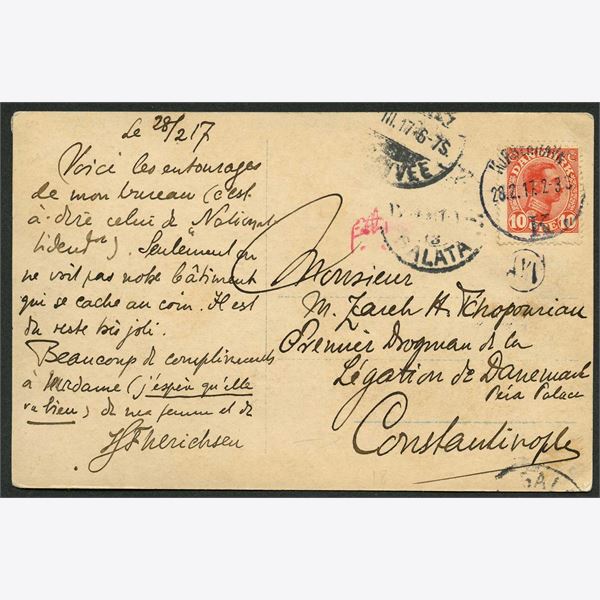 Le 28/2 17
Voici les entourages
de mon bureau (c'est
à dire celui de National
tidende). Seulement on
ne voit pas notre bâtiment
qui se cache au coin. Il est
du reste très joli.
Beaucoup de compliments
à Madame (j'espère qu'elle
va bien) de ma femme et de
Monsieur
M. Zareh H. Tchopourian
Premier Drogman de la
Légation de Danemark
Péra Palace
Constantinople
III.17 6-7S
IVÉE
GALATA
KJØBENHAVN
28.2.17. 2-3
K
DANMARK
10 10
GAL